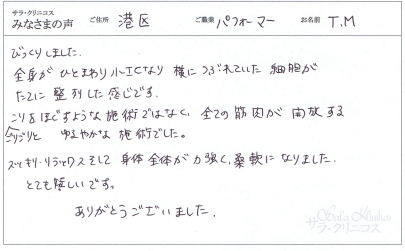 サラ・クリニコス
みなさまの声 ご住所 港区 ご職業 パフォーマー お名前 T.M
びっくりしました.
全身が ひとまわり 小さくなり 横に つぶれていた 細胞が
たてに 整列した 感じです.
こりをほぐすような 施術ではなく、全ての 筋肉が 開放する
ゆるやかな 施術でした。
スッキリ・リラックス そして 身体 全体が 力強く、柔軟に なりました.
とても 嬉しいです。
ありがとうございました.
Sala Klinikos
サラ・クリニコス